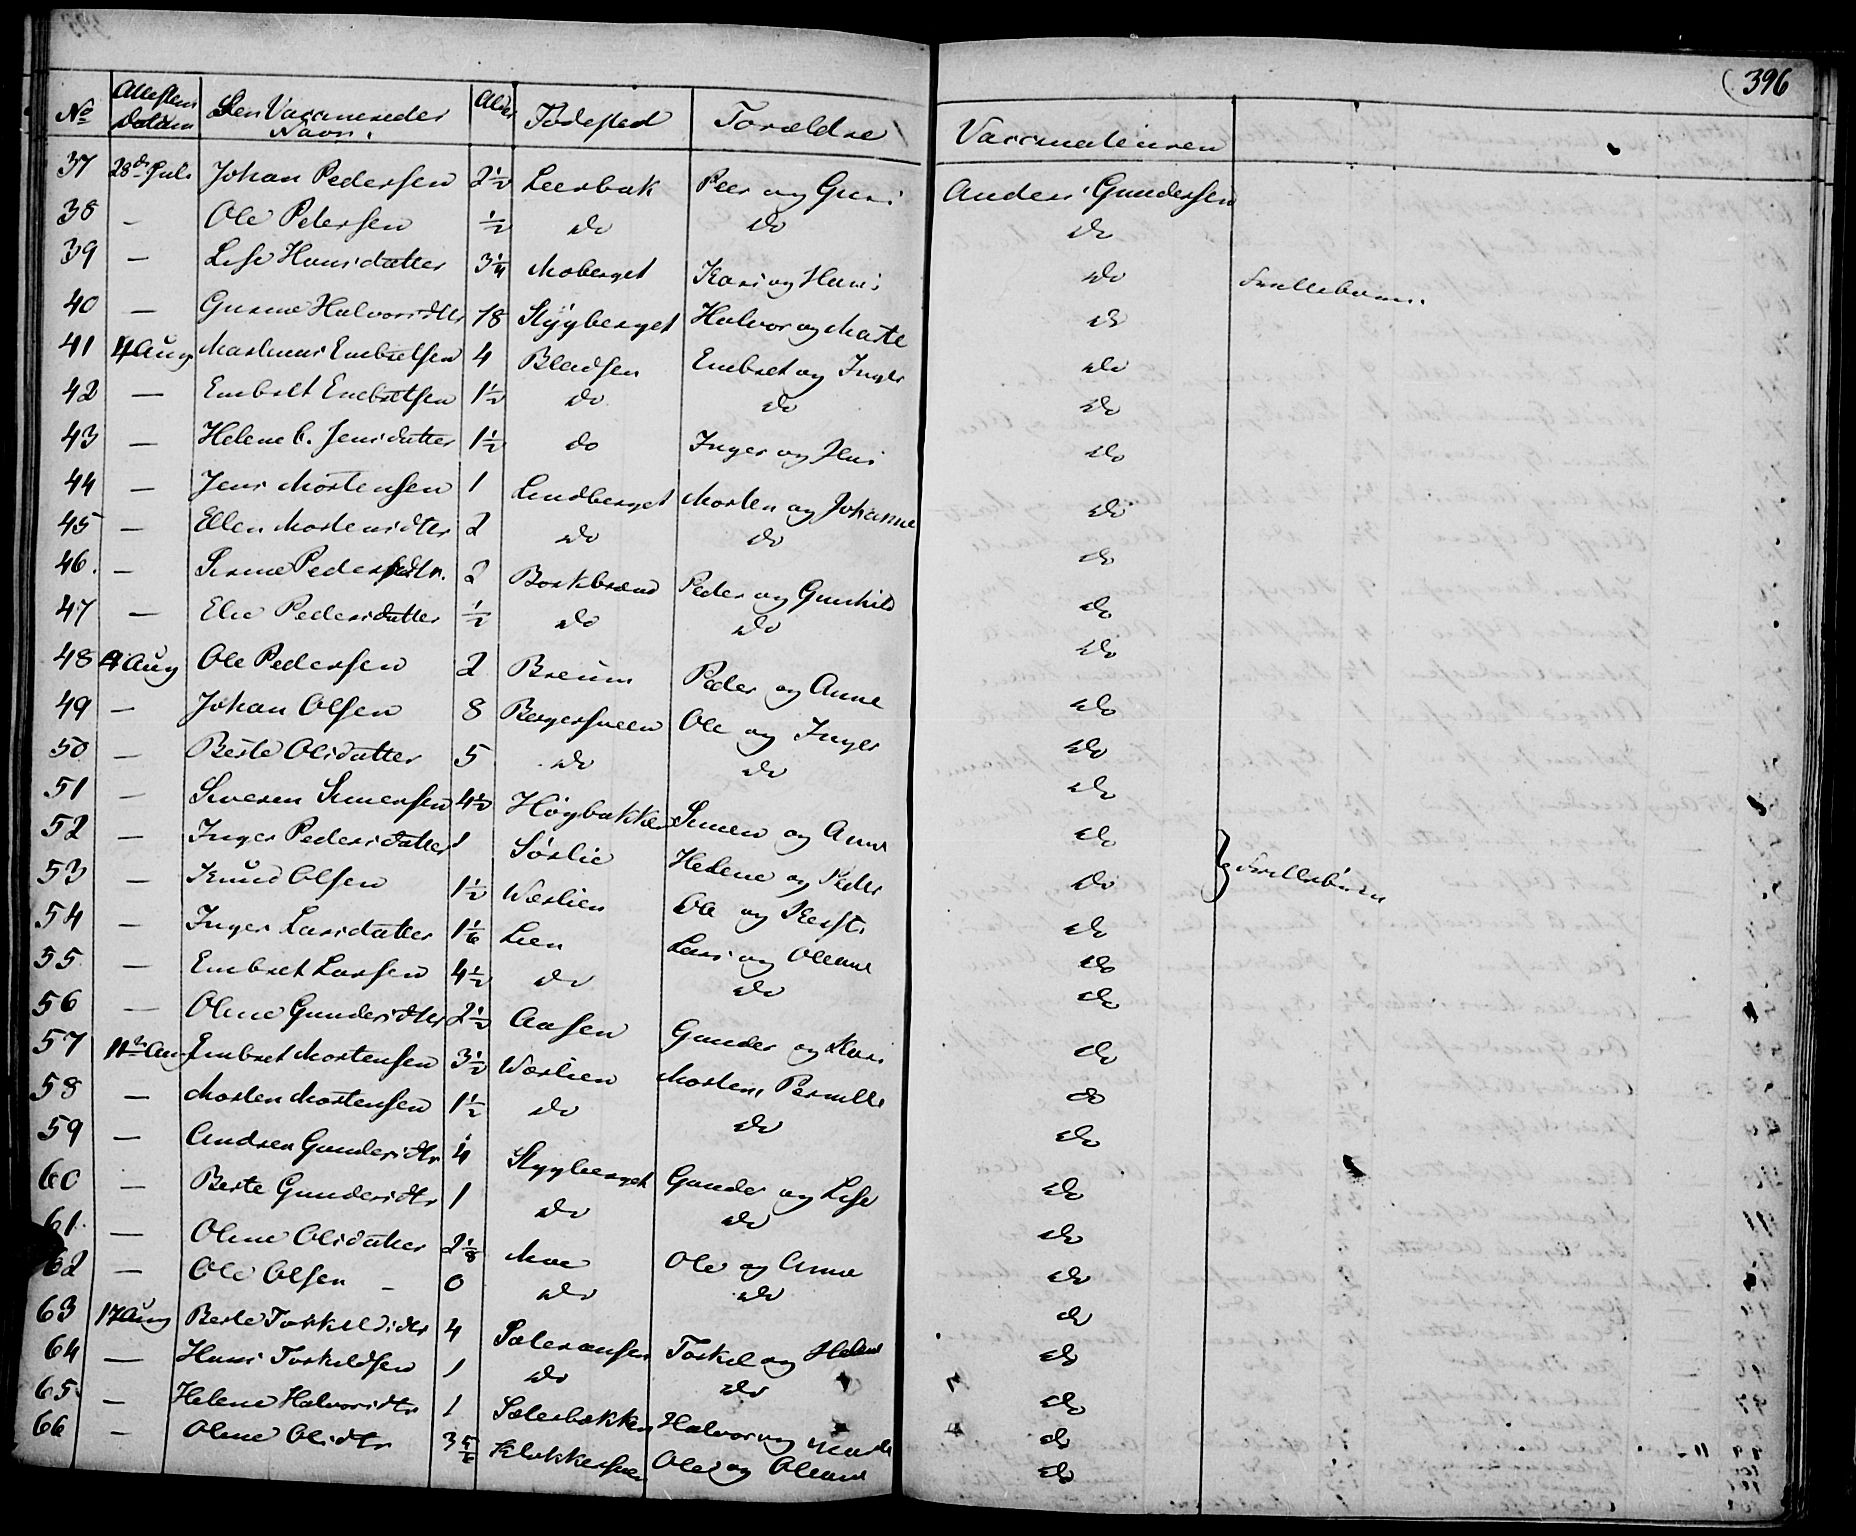 396
No | Attestens Datum | Den Vaccineredes Navn. | Alder | Fødested | Forældre | Vaccinateuren
37 | 28de Juli | Johan Pedersen | 2½ | Leerbak | Peer og Guri | Anders Gundersen
38 | — | Ole Petersen | ½ | do | do | do
39 | — | Lise Hansdatter | 3¼ | Moberget | Kari og Hans | do | Frillebarn.
40 | — | Gurine Halvorsdtter | 18 | Stygberget | Halvor og Marte | do
41 | 4 Aug | Mathias Embretsen | 4 | Bladsen | Embret og Inger | do
42 | — | Embret Embretsen | 1½ | do | do | do
43 | — | Helene C. Jensdatter | 1½ | do | Inger og Jens | do
44 | — | Jens Mortensen | 1 | Lindberget | Morten og Johanne | do
45 | — | Ellen Mortensdtter | 2 | do | do | do
46. | — | Pedersdtr. | 2 | Borkbræud | Peder og Gunhild | do
47 | — | Elie Pedersdatter | ½ | do | do | do
48 | 4 Aug | Ole Pedersen | 2 | Breum | Peder og Anne | do
49 | — | Johan Olsen | 8 | Bergersveen | Ole og Inger | do
50 | — | Berte Olsdatter | 5 | do | do | do
51 | — | Simen Simensen | 4½ | Høgbakken | Simen og Anne | do
52 | — | Inger Pedersdatter | 1 | Sørlie | Helene og Peder | do | } Frillebørn
53 | — | Knud Olsen | 1½ | Wærlien | Ole og Kersti | do
54 | — | Inger Larsdatter | 1⅙ | Lien | Lars og Oleane | do
55 | — | Embret Larsen | 4½ | do | do | do
56 | — | Oline Gundersdtter | 2½ | Aasen | Gunder og Kari | do
57 | 11te Aug | Embret Mortensen | 3½ | Wærlien | Morten, Pernille | do
58 | — | Morten Mortensen | 1½ | do | do | do
59 | — | Andrea Gundersdtr | 4 | Stygberget | Gunder og Lise | do
60 | — | Berte Gundersdtr | 1 | do | do | do
61. | — | Oline Olsdatter | 2⅛ | Moe | Ole og Anne | do
62 | — | Ole Olsen | 0 | do | do | do
63 | 17 Aug | Berte Torkildsdtr | 4 | Sæteraasen | Torkel og Helene | do
64 | — | Hans Torkildsen | 1 | do | do | do
65 | — | Helene Halvorsdtr | 1 | Sæterbakken | Halvor og Marte | do
66 | — | Oline Olsdtr | 3⅚ | Klokkersveen | Ole og Oleane | do